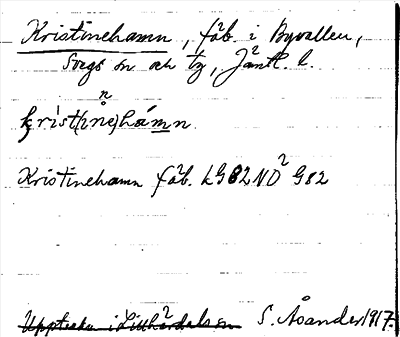 Kristinehamn, fäb. i Byvallen,
Svegs sn och tg, Jämtl. l.
krist(ine)hámn
Kristinehamn fäb. kG82ND² G82
Uppteckn. i Lillhärdals sn S. Åsander 1917.